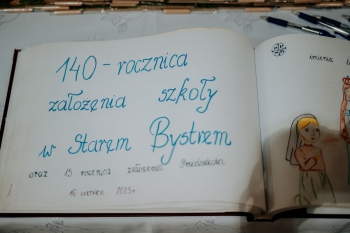 140 - rocznica
założenia szkoły
w Starem Bystrem
oraz 15 rocznica założenia Przedszkola
16 czerwiec 2023r
imienia